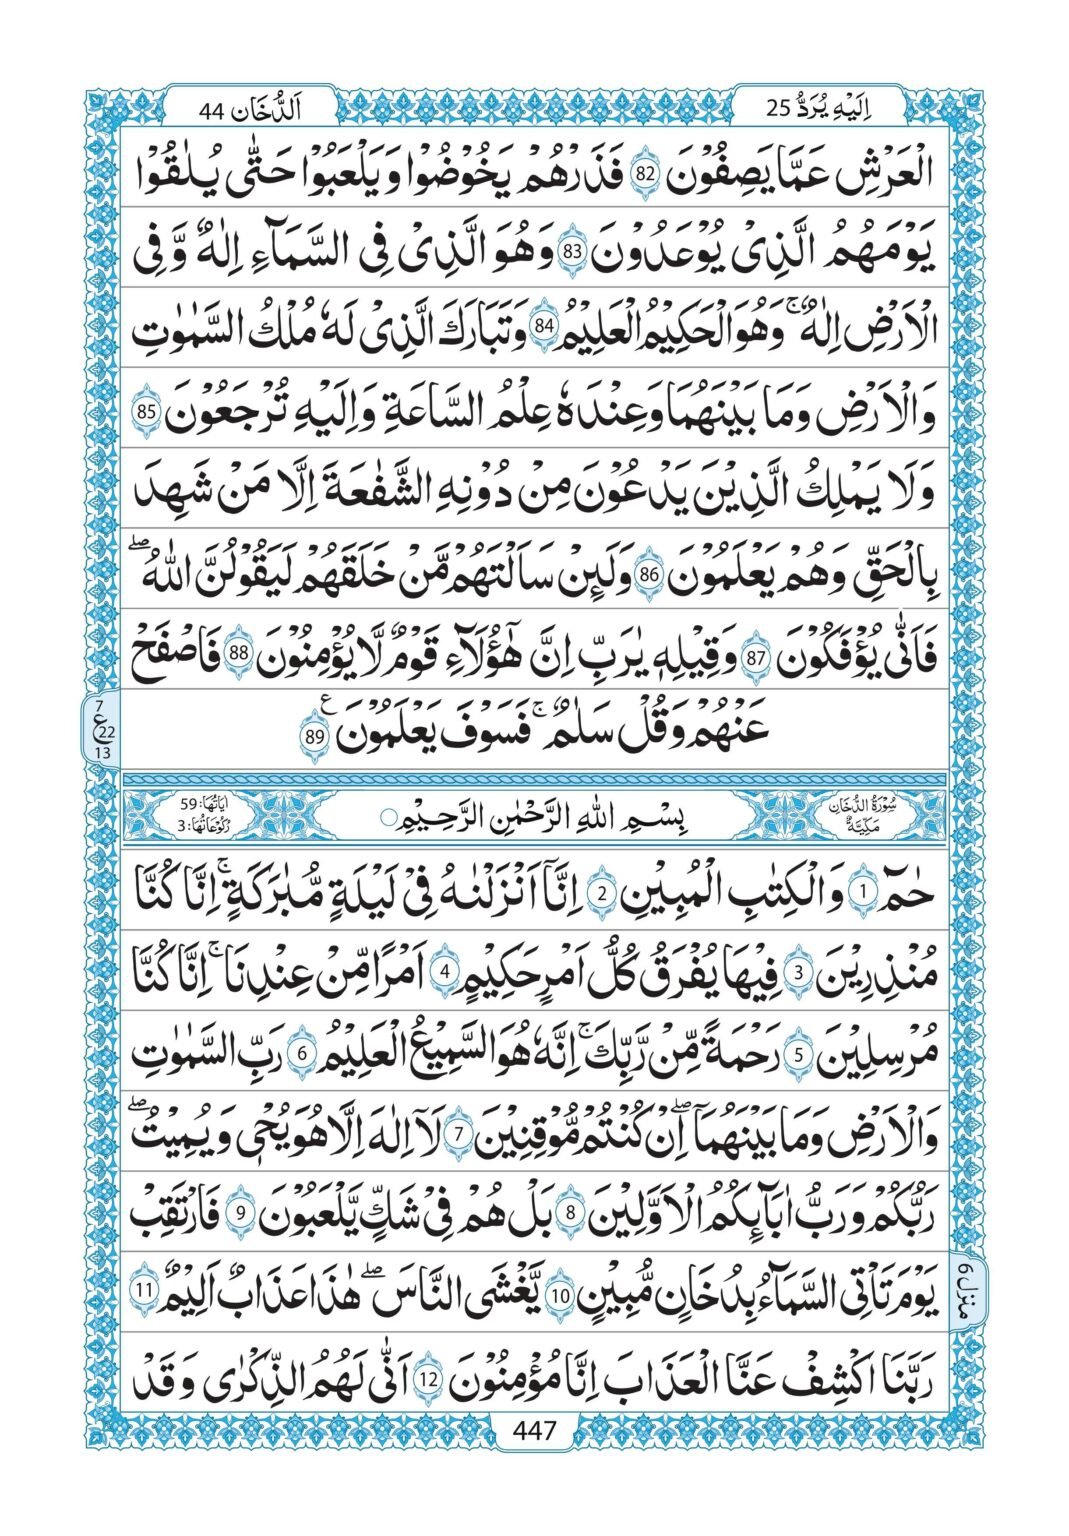 اِلَيْهِ يُرَدُّ 25
اَلدُّخَان 44
الْعَرْشِ عَمَّا يَصِفُوْنَ 82 فَذَرْهُمْ يَخُوْضُوْا وَيَلْعَبُوْا حَتّٰى يُلٰقُوْا
يَوْمَهُمُ الَّذِىْ يُوْعَدُوْنَ 83 وَهُوَ الَّذِىْ فِى السَّمَآءِ اِلٰهٌ وَّ فِى
الْاَرْضِ اِلٰهٌ ۚ وَهُوَ الْحَكِيْمُ الْعَلِيْمُ 84 وَتَبَارَكَ الَّذِىْ لَهٗ مُلْكُ السَّمٰوٰتِ
وَالْاَرْضِ وَمَا بَيْنَهُمَا وَعِنْدَهٗ عِلْمُ السَّاعَةِ وَاِلَيْهِ تُرْجَعُوْنَ 85
وَلَا يَمْلِكُ الَّذِيْنَ يَدْعُوْنَ مِنْ دُوْنِهِ الشَّفٰعَةَ اِلَّا مَنْ شَهِدَ
بِالْحَقِّ وَهُمْ يَعْلَمُوْنَ 86 وَلَىِٕنْ سَاَلْتَهُمْ مَّنْ خَلَقَهُمْ لَيَقُوْلُنَّ اللّٰهُ ۖ
فَاَنّٰى يُؤْفَكُوْنَ 87 وَقِيْلِهٖ يٰرَبِّ اِنَّ هٰٓؤُلَآءِ قَوْمٌ لَّا يُؤْمِنُوْنَ 88 فَاصْفَحْ
عَنْهُمْ وَقُلْ سَلٰمٌ ۚ فَسَوْفَ يَعْلَمُوْنَ ع 89
7
ع 22
13
سُوْرَةُ الدُّخَانِ
مَكِّيَّةٌ
بِسْمِ اللّٰهِ الرَّحْمٰنِ الرَّحِيْمِ
اٰيَاتُهَا: 59
رُكُوْعَاتُهَا: 3
حٰمٓ 1 وَالْكِتٰبِ الْمُبِيْنِ 2 اِنَّآ اَنْزَلْنٰهُ فِىْ لَيْلَةٍ مُّبٰرَكَةٍ ۚ اِنَّا كُنَّا
مُنْذِرِيْنَ 3 فِيْهَا يُفْرَقُ كُلُّ اَمْرٍ حَكِيْمٍ 4 اَمْرًا مِّنْ عِنْدِنَا ۚ اِنَّا كُنَّا
مُرْسِلِيْنَ 5 رَحْمَةً مِّنْ رَّبِّكَ ۚ اِنَّهٗ هُوَ السَّمِيْعُ الْعَلِيْمُ 6 رَبِّ السَّمٰوٰتِ
وَالْاَرْضِ وَمَا بَيْنَهُمَا ۖ اِنْ كُنْتُمْ مُّوْقِنِيْنَ 7 لَآ اِلٰهَ اِلَّا هُوَ يُحْىٖ وَيُمِيْتُ ۖ
رَبُّكُمْ وَرَبُّ اٰبَآئِكُمُ الْاَوَّلِيْنَ 8 بَلْ هُمْ فِىْ شَكٍّ يَّلْعَبُوْنَ 9 فَارْتَقِبْ
يَوْمَ تَاْتِى السَّمَآءُ بِدُخَانٍ مُّبِيْنٍ 10 يَّغْشَى النَّاسَ ۖ هٰذَا عَذَابٌ اَلِيْمٌ 11
رَبَّنَا اكْشِفْ عَنَّا الْعَذَابَ اِنَّا مُؤْمِنُوْنَ 12 اَنّٰى لَهُمُ الذِّكْرٰى وَقَدْ
منزل 6
447